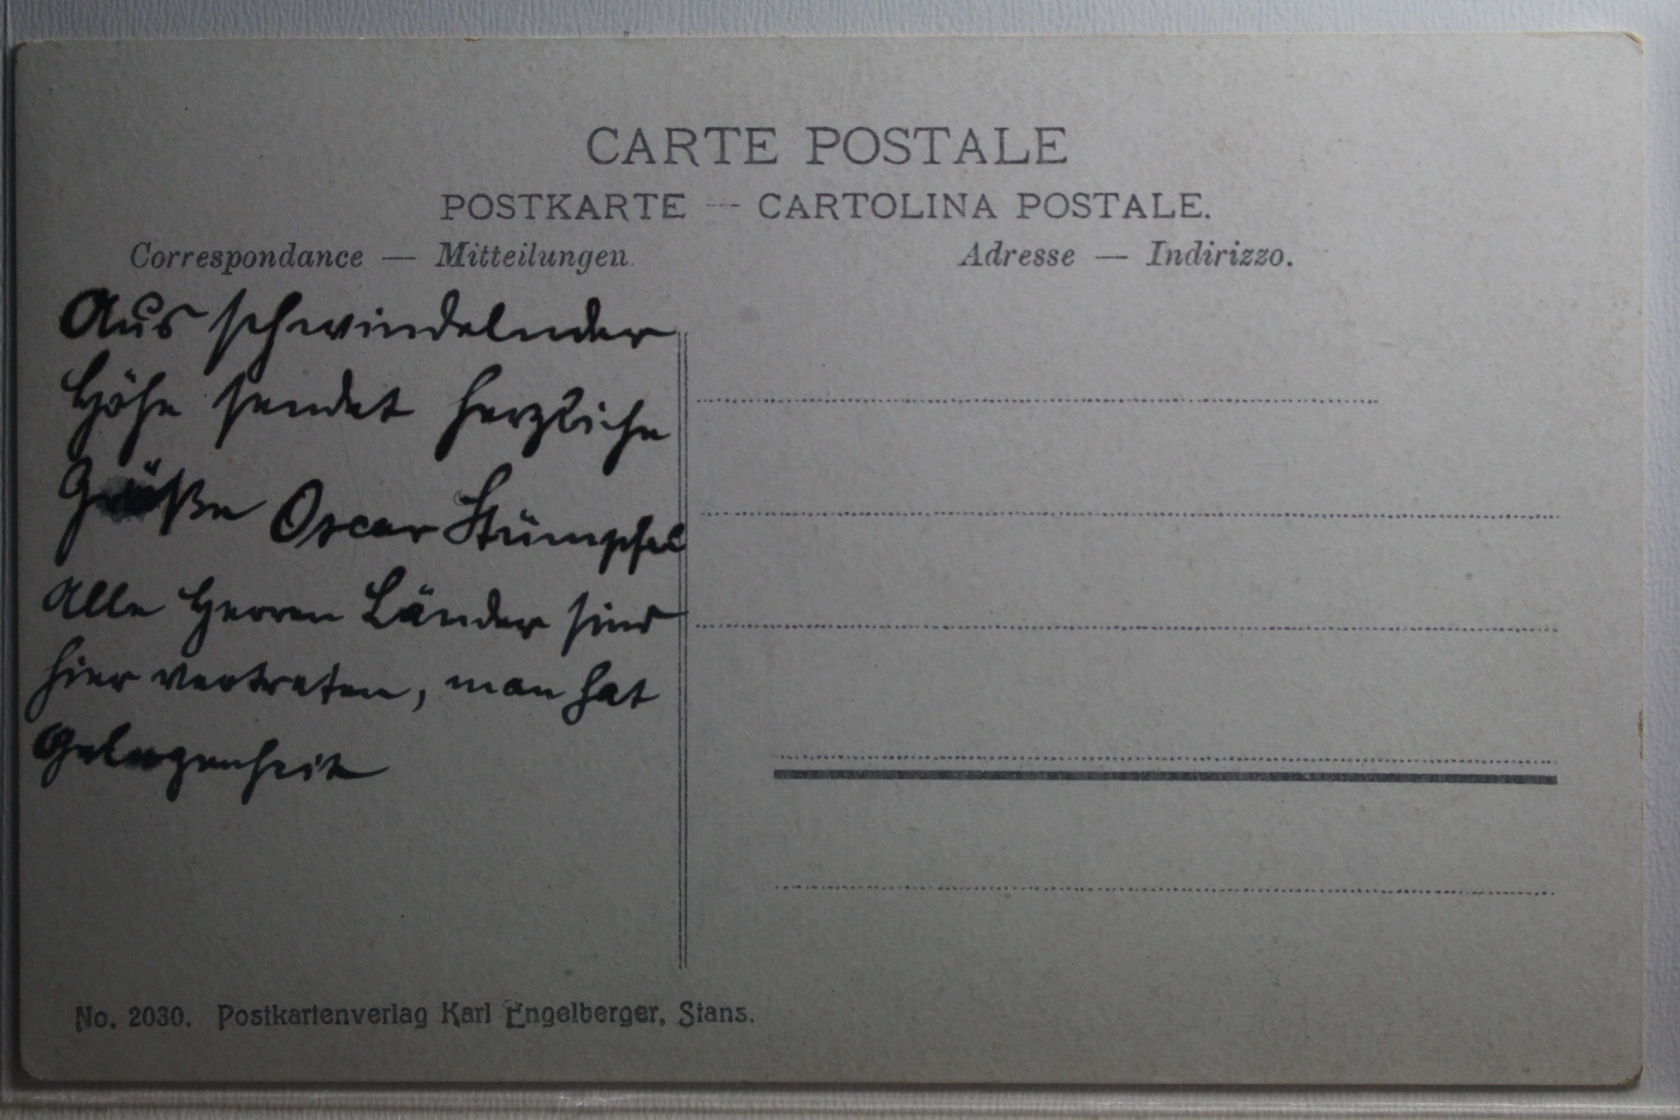 CARTE POSTALE
POSTKARTE — CARTOLINA POSTALE.
Correspondance — Mitteilungen.
Adresse — Indirizzo.
Aus schwindelnder
Höhe sendet herzliche
Grüße Oscar Stümpfel
Alle Herren Länder sind
hier vertreten, man hat
Gelegenheit
No. 2030. Postkartenverlag Karl Engelberger, Stans.